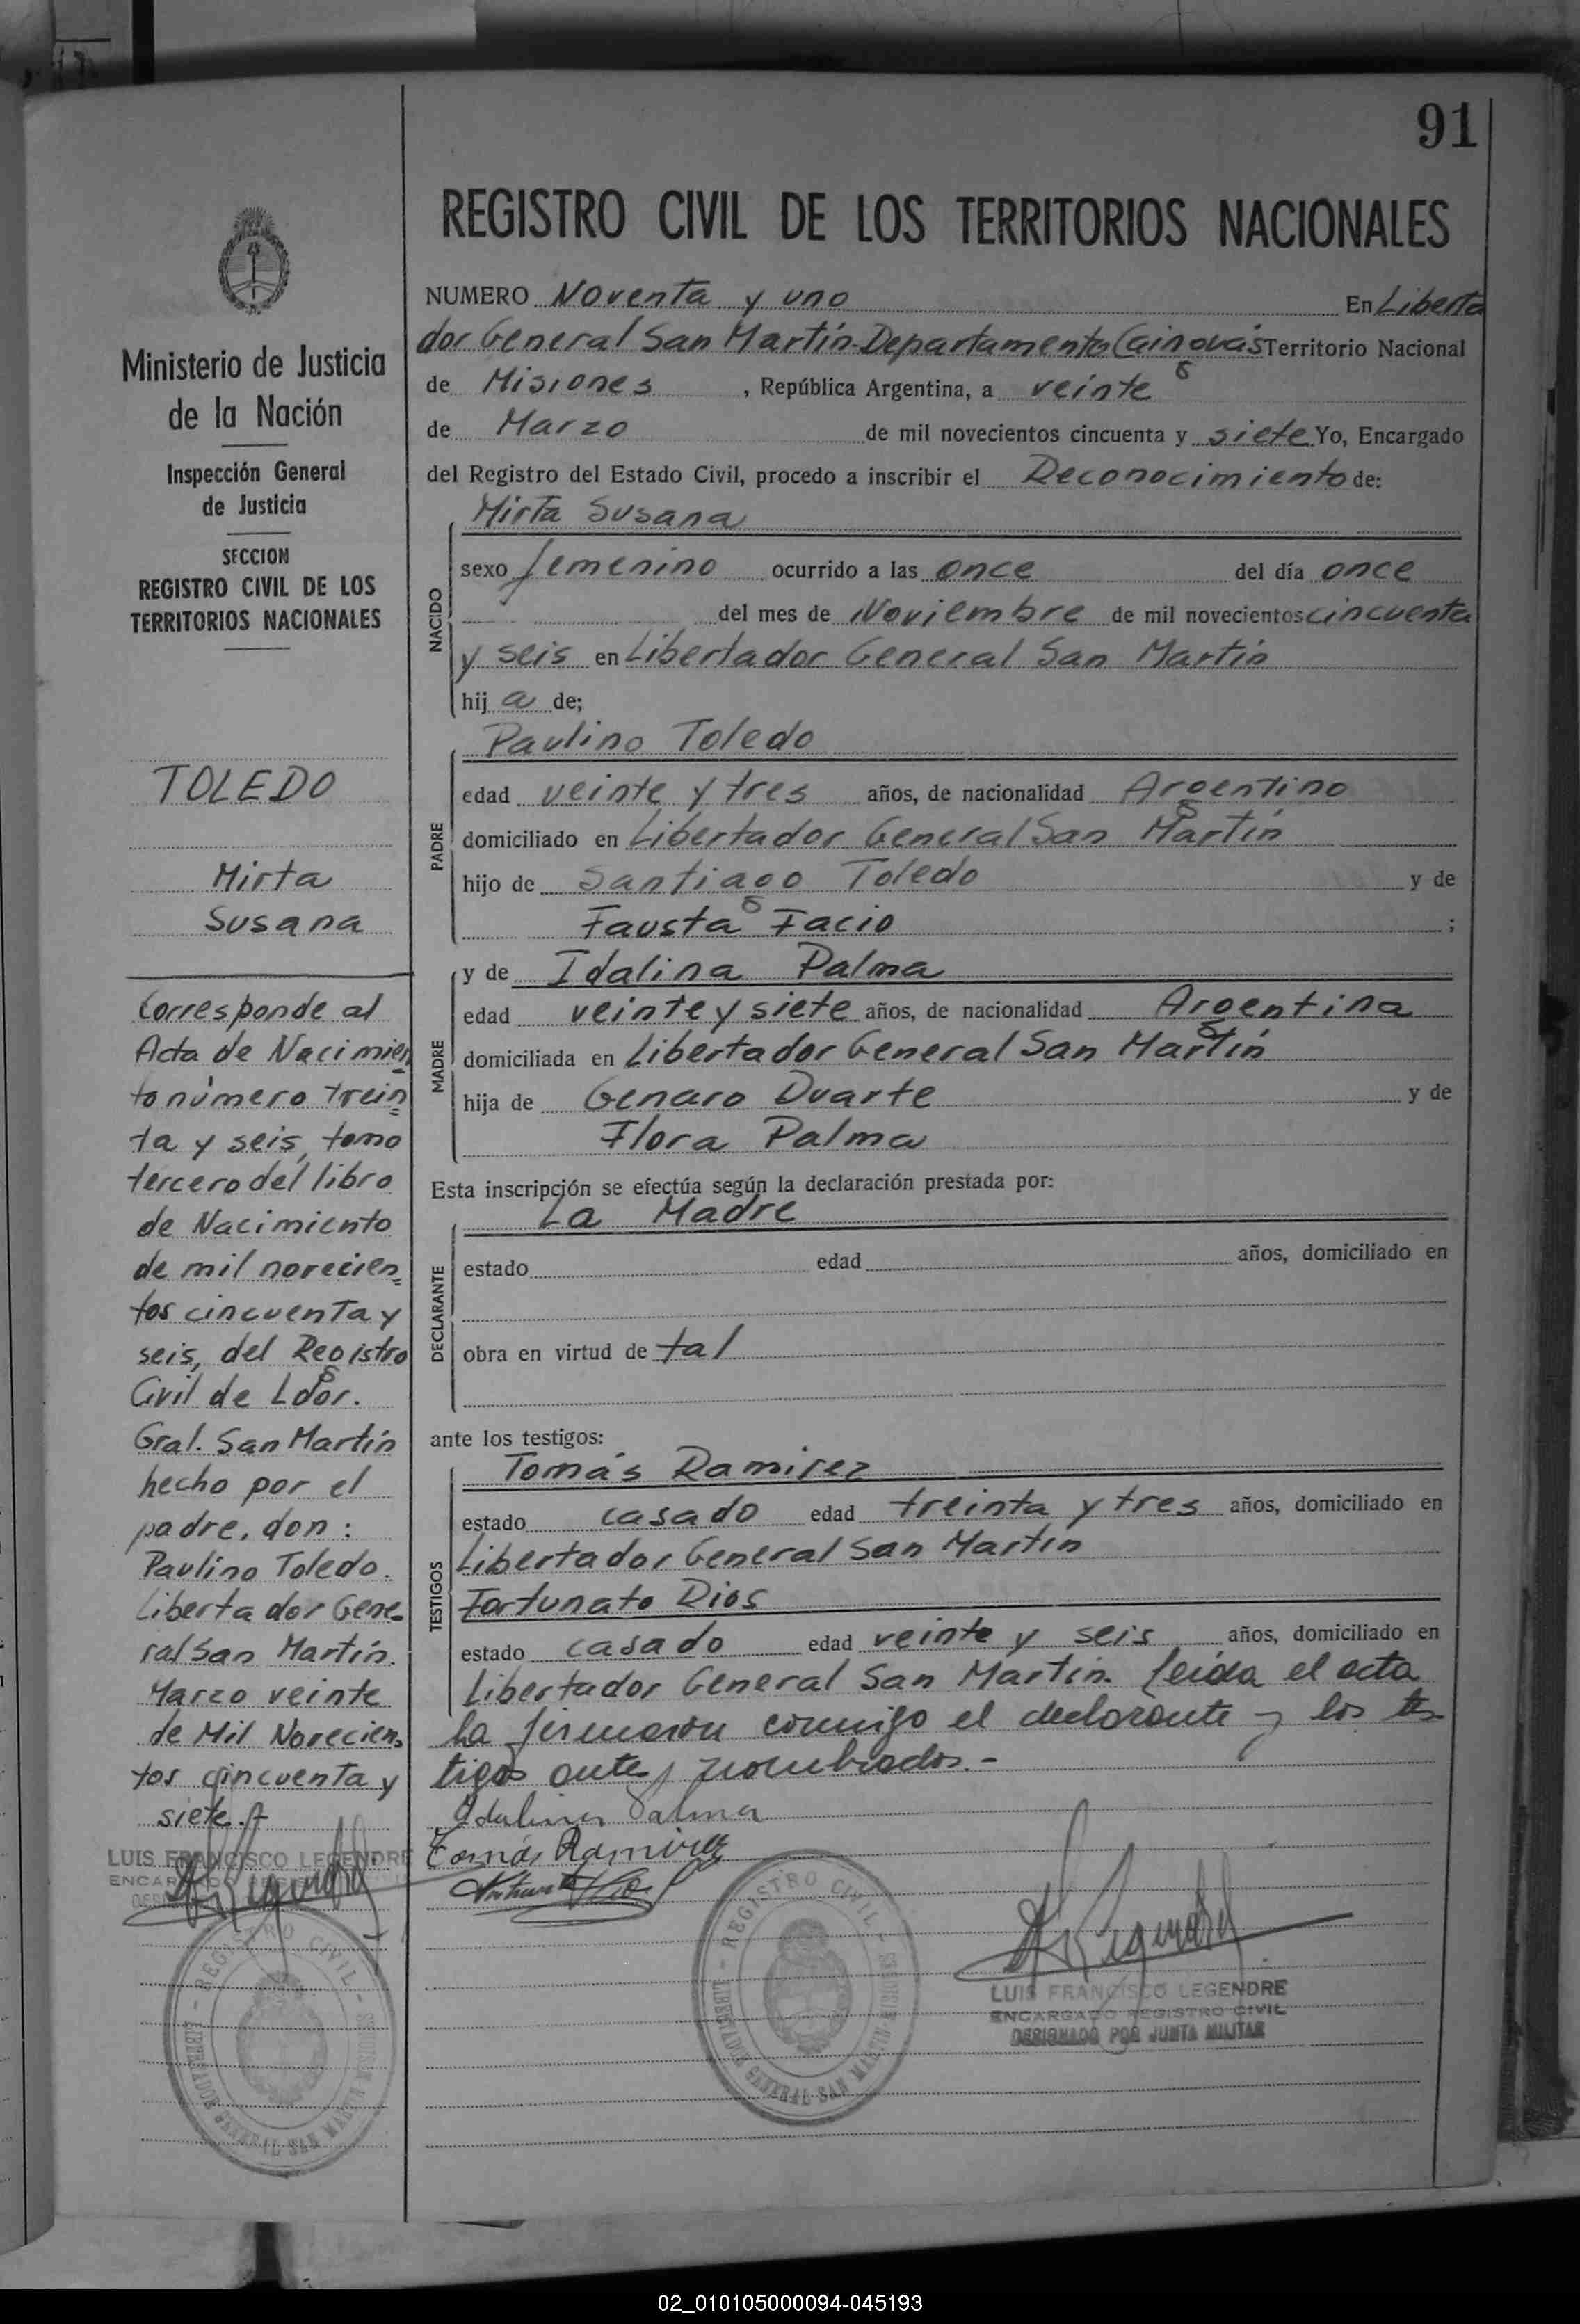 91
REGISTRO CIVIL DE LOS TERRITORIOS NACIONALES
NUMERO Noventa y uno En Liberta
dor General San Martín-Departamento Cainguás Territorio Nacional
de Misiones, República Argentina, a veinte
de Marzo de mil novecientos cincuenta y siete Yo, Encargado
del Registro del Estado Civil, procedo a inscribir el Reconocimiento de:
NACIDO
Mirta Susana
sexo femenino ocurrido a las once del día once
del mes de Noviembre de mil novecientos cincuenta
y seis en Libertador General San Martín
hij a de;
PADRE
Paulino Toledo
edad veinte y tres años, de nacionalidad Argentino
domiciliado en Libertador General San Martín
hijo de Santiago Toledo y de
Fausta Facio ;
MADRE
y de Idalina Palma
edad veinte y siete años, de nacionalidad Argentina
domiciliada en Libertador General San Martín
hija de Genaro Duarte y de
Flora Palma
Esta inscripción se efectúa según la declaración prestada por:
DECLARANTE
La Madre
estado edad años, domiciliado en
obra en virtud de tal
ante los testigos:
TESTIGOS
Tomás Ramirez
estado casado edad treinta y tres años, domiciliado en
Libertador General San Martín
Fortunato Rios
estado casado edad veinte y seis años, domiciliado en
Libertador General San Martín. Leída el acta
la firmaron conmigo el declarante y los tes
tigos antes nombrados.-
Idalina Palma
Tomás Ramirez
REGISTRO CIVIL - LIBERTADOR GENERAL SAN MARTIN MISIONES
LUIS FRANCISCO LEGENDRE
ENCARGADO REGISTRO CIVIL
DESIGNADO POR JUNTA MILITAR
Ministerio de Justicia
de la Nación
Inspección General
de Justicia
SECCION
REGISTRO CIVIL DE LOS
TERRITORIOS NACIONALES
TOLEDO
Mirta
Susana
Corresponde al
Acta de Nacimien
to número trein
ta y seis, tomo
tercero del libro
de Nacimiento
de mil novecien
tos cincuenta y
seis, del Registro
Civil de Ldor.
Gral. San Martín
hecho por el
padre, don:
Paulino Toledo.
Libertador Gene-
ral San Martín.
Marzo veinte
de Mil Novecien
tos cincuenta y
siete.-
LUIS FRANCISCO LEGENDRE
REGISTRO CIVIL - LIBERTADOR GENERAL SAN MARTIN MISIONES
02_010105000094-045193